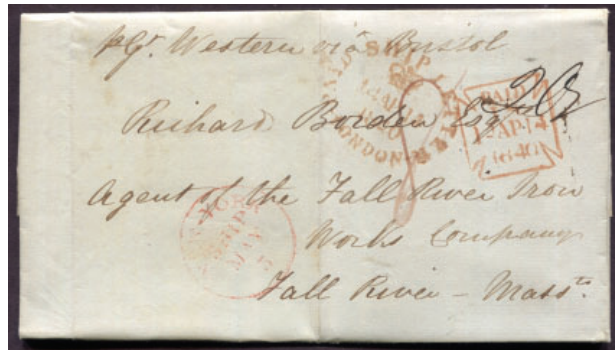 pr Gt. Western via Bristol
PAID SHIP LETTER
LONDON
PAID
14 AP 14
1840
Richard Borden Esqr
Agent of the Fall River Iron
Works Company
NEW YORK
SHIP
MAY
Fall River - Massts.